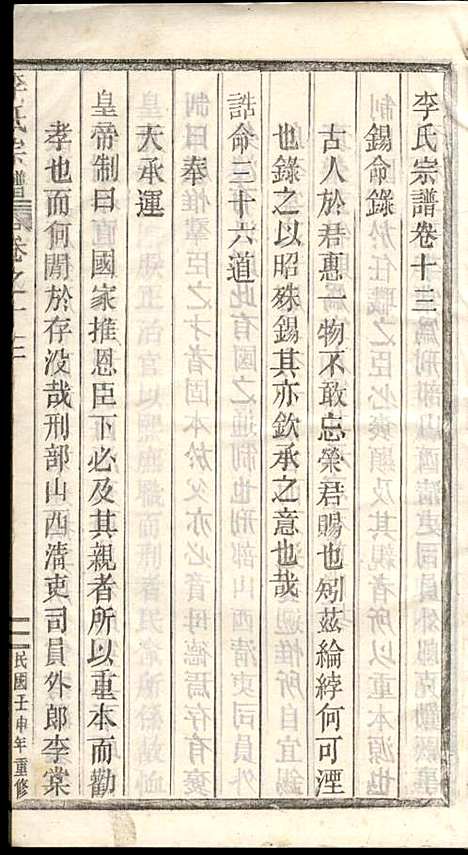 李氏宗譜卷十三
錫命錄
古人於君惠一物不敢忘榮君賜也矧茲綸綍何可湮
也錄之以昭殊錫其亦欽承之意也哉
誥命三十六道
奉
天承運
皇帝制曰國家推恩臣下必及其親者所以重本而勸
孝也而何閒於存没哉刑部山西清吏司員外郎李棠
李氏宗譜
卷之十三
民國壬申年重修